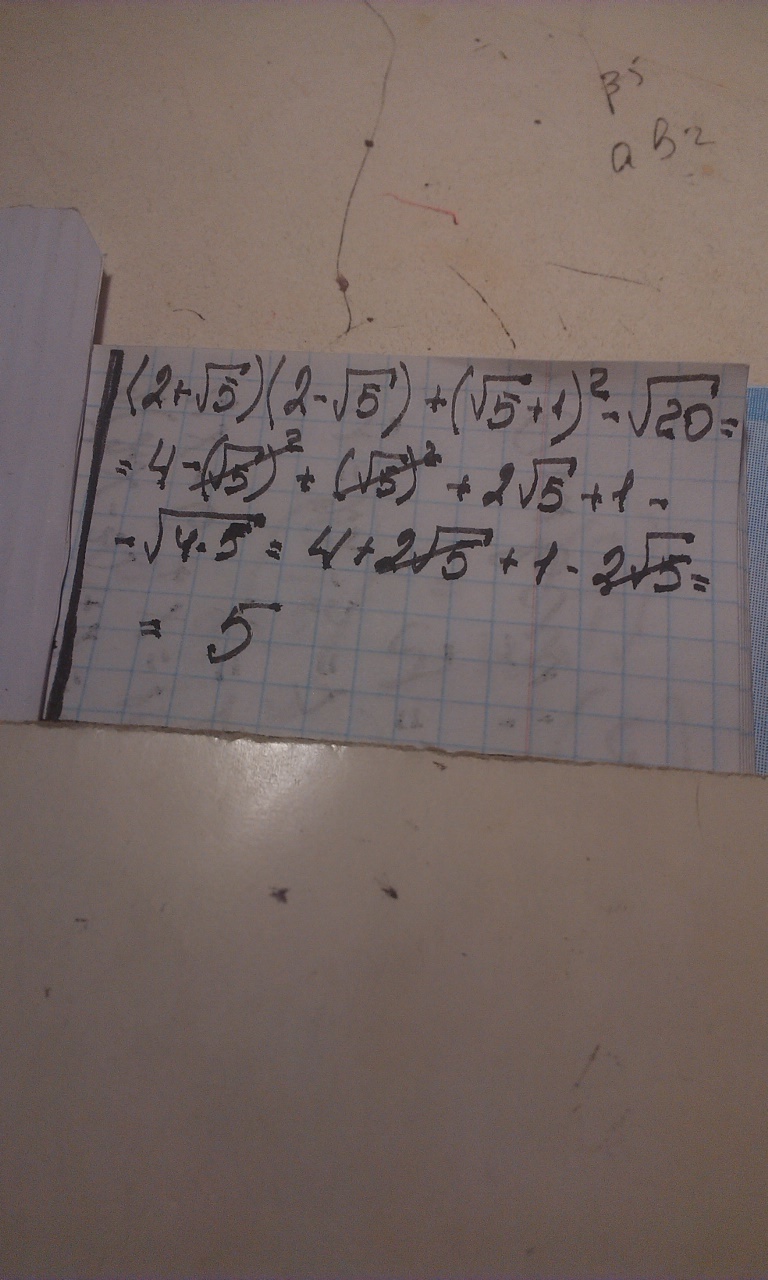 β5
a B2
(2+√5)(2-√5)+(√5+1)²-√20=
=4-(√5)²+(√5)²+2√5+1-
-√4·5=4+2√5+1-2√5=
= 5